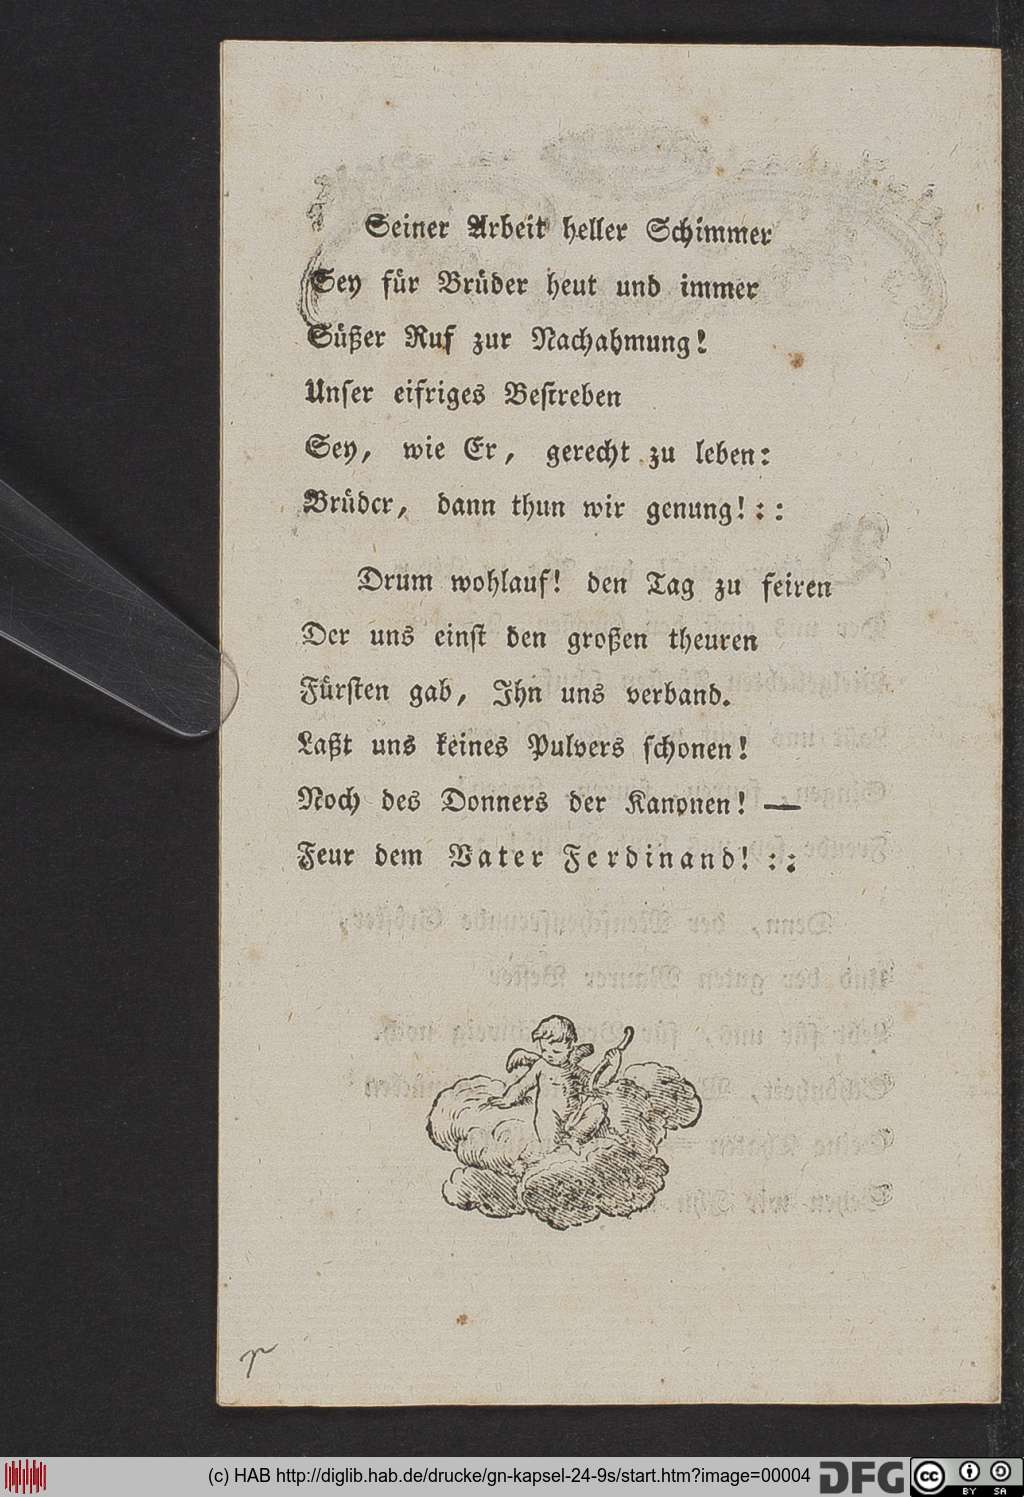 Seiner Arbeit heller Schimmer
Sey für Brüder heut und immer
Süßer Ruf zur Nachahmung!
Unſer eifriges Beſtreben
Sey, wie Er, gerecht zu leben:
Brüder, dann thun wir genung! : :
Drum wohlauf! den Tag zu feiren
Der uns einſt den großen theuren
Fürſten gab, Ihn uns verband.
Laßt uns keines Pulvers ſchonen!
Noch des Donners der Kanonen! —
Feur dem Vater Ferdinand! : :
(c) HAB http://diglib.hab.de/drucke/gn-kapsel-24-9s/start.htm?image=00004
DFG
cc BY SA